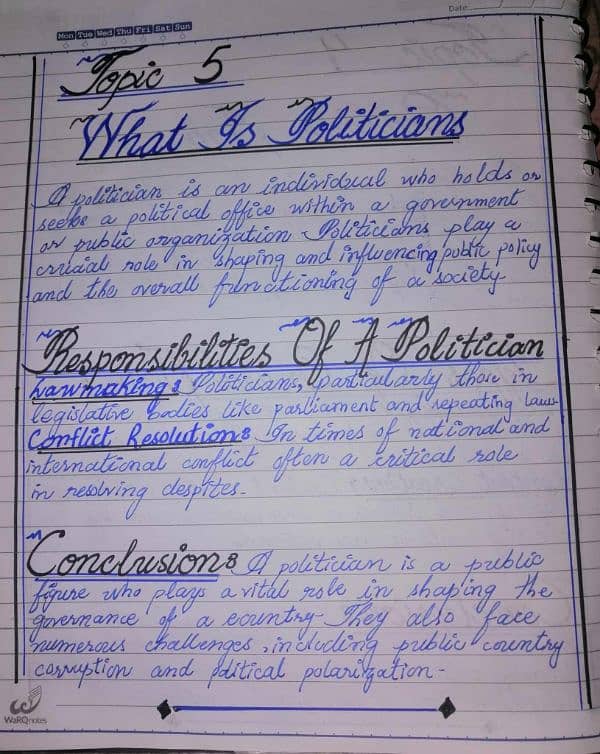 Date
Mon Tue Wed Thu Fri Sat Sun
Topic 5
What Is Politicians
A politician is an individual who holds or
seeks a political office within a government
or public organization. Politicians play a
crucial role in shaping and influencing public policy
and the overall functioning of a society.
Responsibilities Of A Politician
Lawmaking: Politicians, particularly those in
legislative bodies like parliament and repeating laws.
Conflict Resolution: In times of national and
international conflict often a critical role
in resolving despites.
Conclusion: A politician is a public
figure who plays a vital role in shaping the
governance of a country. They also face
numerous challenges, including public country
corruption and political polarization.
WaRQnotes